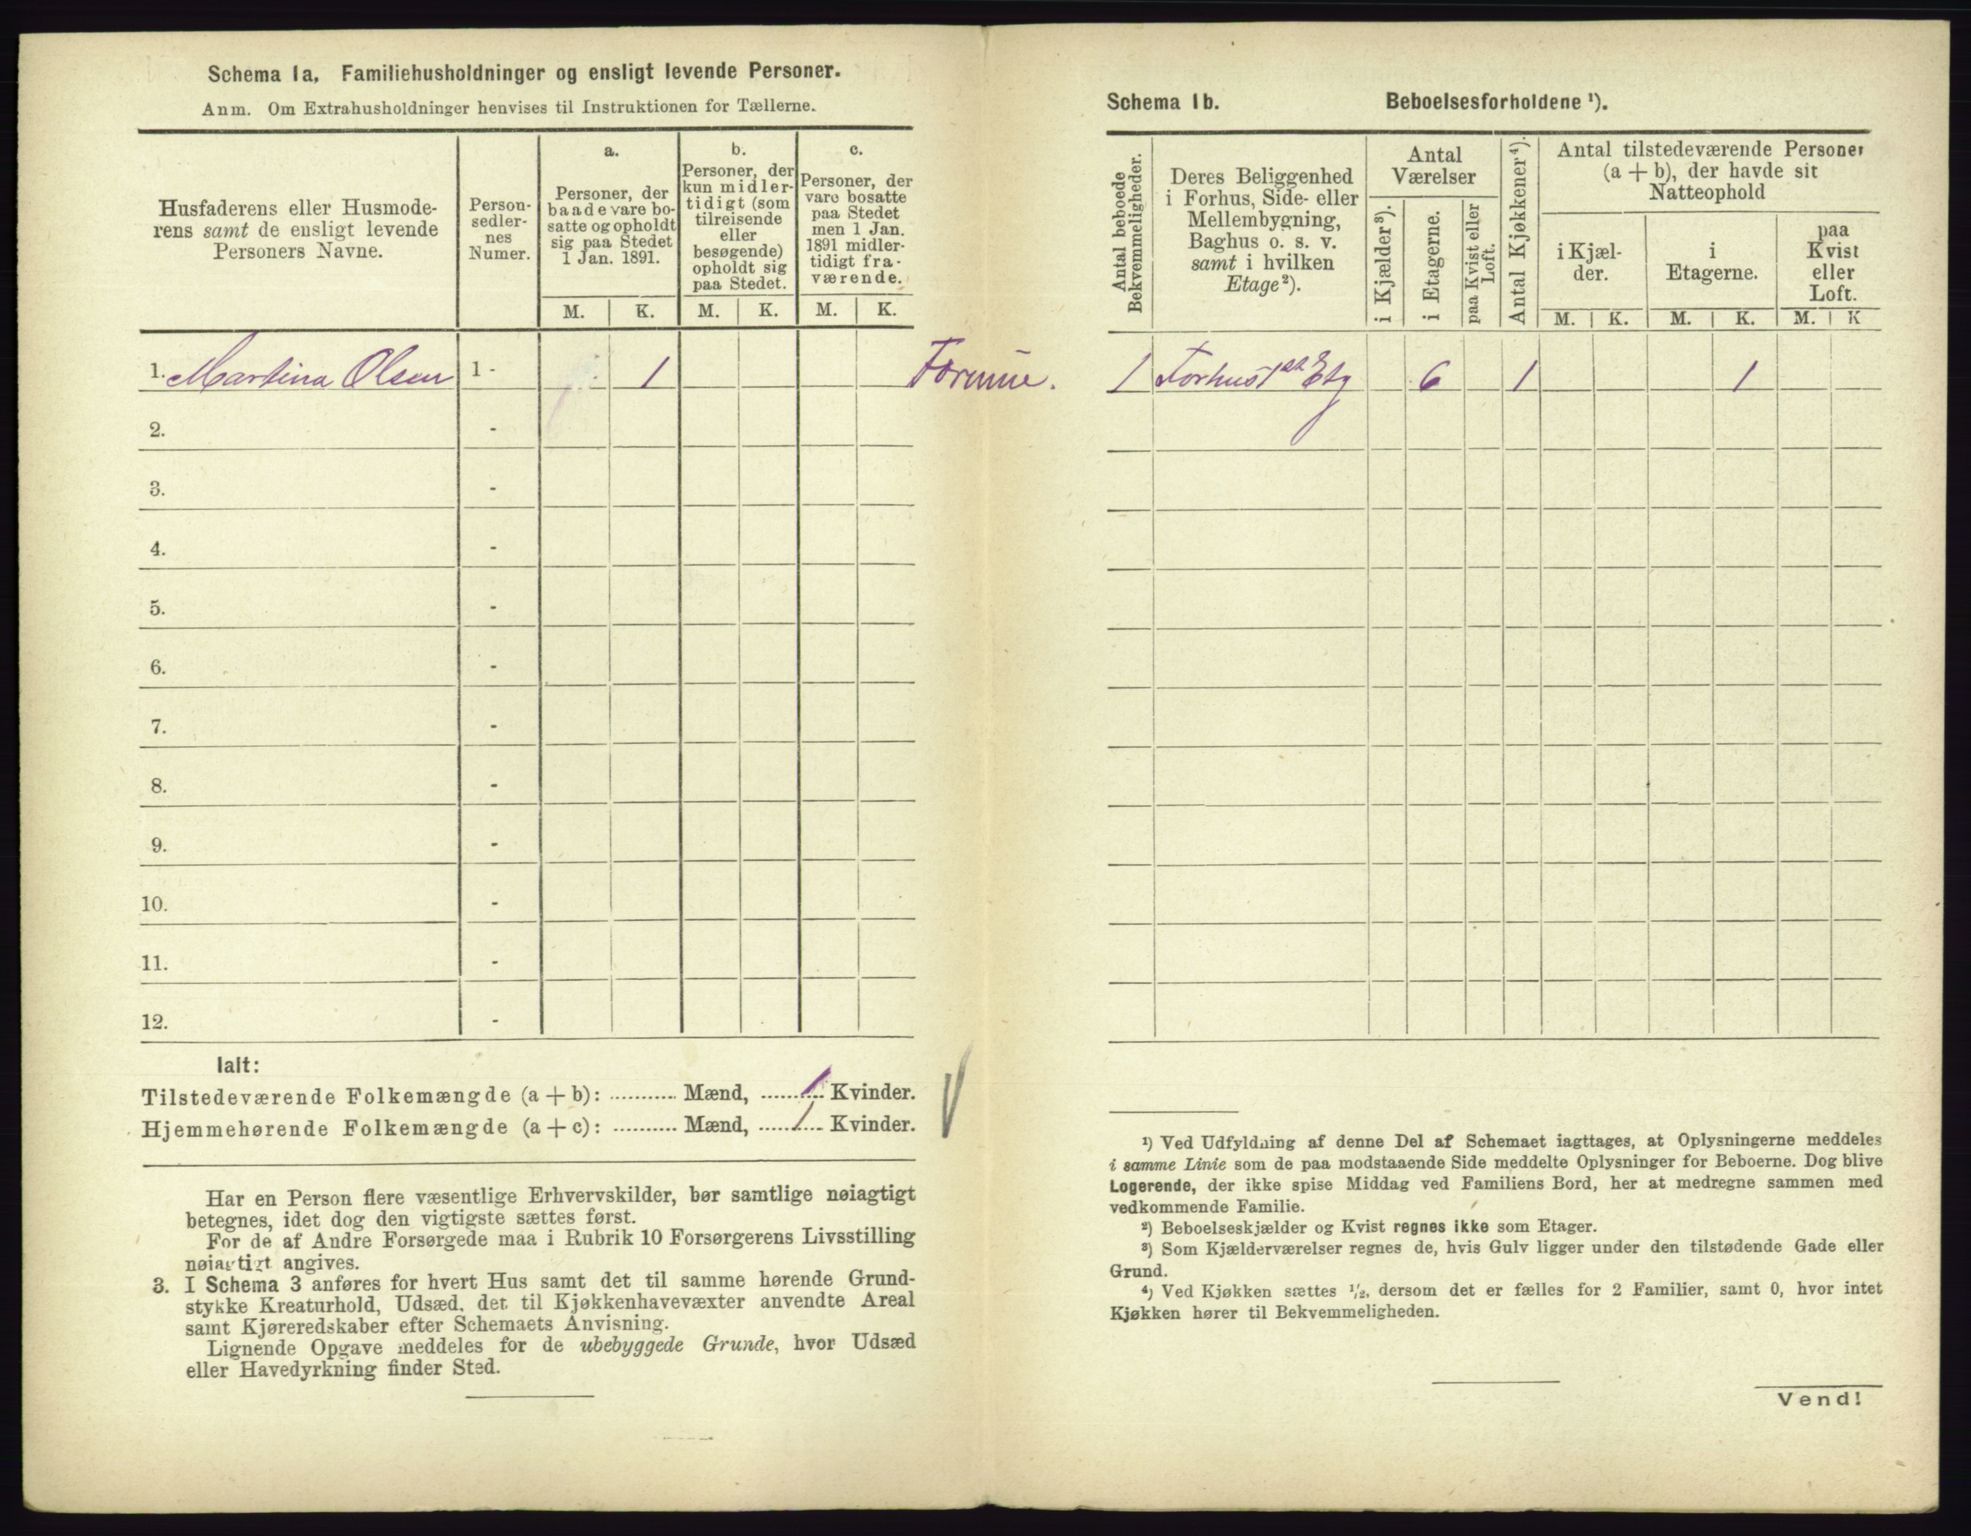 Schema 1a. Familiehusholdninger og ensligt levende Personer.
Anm. Om Extrahusholdninger henvises til Instruktionen for Tællerne.
Husfaderens eller Husmode-
rens samt de ensligt levende
Personers Navne.
Person-
sedler-
nes
Numer.
a.
Personer, der
baade vare bo-
satte og opholdt
sig paa Stedet
1 Jan. 1891.
b.
Personer, der
kun midler-
tidigt (som
tilreisende
eller
besøgende)
opholdt sig
paa Stedet.
c.
Personer, der
vare bosatte
paa Stedet
men 1 Jan.
1891 midler-
tidigt fra-
værende.
M. K. M. K. M. K.
1. Martina Olsen 1 - 1
2. -
3. -
4. -
5. -
6. -
7. -
8. -
9. -
10. -
11. -
12. -
Ialt:
Tilstedeværende Folkemængde (a + b): ........... Mænd, 1 Kvinder.
Hjemmehørende Folkemængde (a + c): ........... Mænd, 1 Kvinder.
Har en Person flere væsentlige Erhvervskilder, bør samtlige nøiagtigt
betegnes, idet dog den vigtigste sættes først.
For de af Andre Forsørgede maa i Rubrik 10 Forsørgerens Livsstilling
nøiagtigt angives.
3. I Schema 3 anføres for hvert Hus samt det til samme hørende Grund-
stykke Kreaturhold, Udsæd, det til Kjøkkenhavevæxter anvendte Areal
samt Kjøreredskaber efter Schemaets Anvisning.
Lignende Opgave meddeles for de ubebyggede Grunde, hvor Udsæd
eller Havedyrkning finder Sted.
Schema 1b. Beboelsesforholdene ¹).
Antal beboede
Bekvemmeligheder.
Deres Beliggenhed
i Forhus, Side- eller
Mellembygning,
Baghus o. s. v.
samt i hvilken
Etage²).
Antal
Værelser
i Kjælder³).
i Etagerne.
paa Kvist eller
Loft.
Antal Kjøkkener⁴).
Antal tilstedeværende Personer
(a + b), der havde sit
Natteophold
i Kjæl-
der.
i
Etagerne.
paa
Kvist
eller
Loft.
M. K. M. K. M. K
1 Forhus 1st Etg 6 1 1
¹) Ved Udfyldning af denne Del af Schemaet iagttages, at Oplysningerne meddeles
i samme Linie som de paa modstaaende Side meddelte Oplysninger for Beboerne. Dog blive
Logerende, der ikke spise Middag ved Familiens Bord, her at medregne sammen med
vedkommende Familie.
²) Beboelseskjælder og Kvist regnes ikke som Etager.
³) Som Kjælderværelser regnes de, hvis Gulv ligger under den tilstødende Gade eller
Grund.
⁴) Ved Kjøkken sættes ½, dersom det er fælles for 2 Familier, samt 0, hvor intet
Kjøkken hører til Bekvemmeligheden.
Vend!